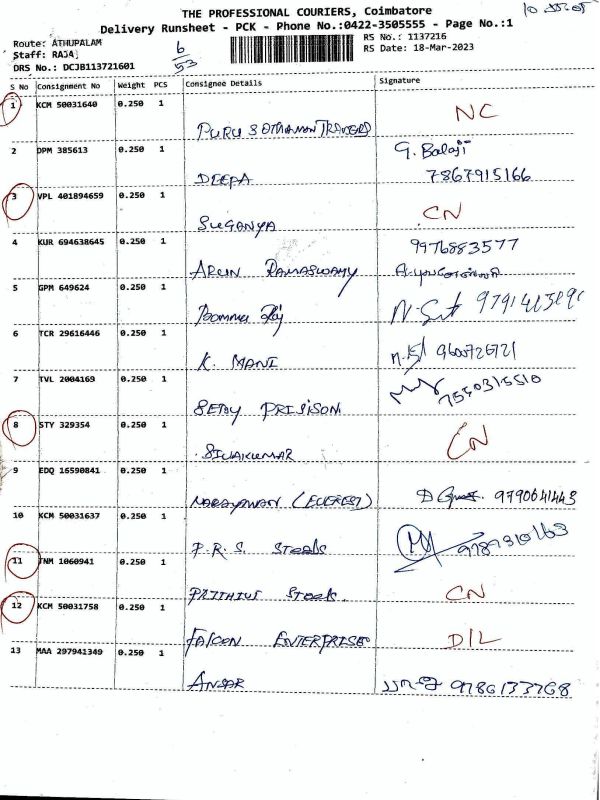 THE PROFESSIONAL COURIERS, Coimbatore
Delivery Runsheet - PCK - Phone No.:0422-3505555 - Page No.:1
Route: ATHUPALAM
RS No.: 1137216
Staff: RAJA
6/53
RS Date: 18-Mar-2023
DRS No.: DCJB113721601
S No Consignment No Weight PCS Consignee Details Signature
1 KCM 50031640 0.250 1 NC
PURUSOTHAMAN TRADERS
2 DPM 385613 0.250 1 G. Balaji
DEEPA 7867915166
3 VPL 401894659 0.250 1 CN
SUGANYA
4 KUR 694638645 0.250 1 9976883577
ARUN RAMASWAMY
5 GPM 649624 0.250 1
Bommu Raj
6 TCR 29616446 0.250 1 9600726721
K. MANI
7 TVL 2004169 0.250 1 7550315510
8 STY 329354 0.250 1 CN
SIVAKUMAR
9 EDQ 16590841 0.250 1
NARAYANAN (EVEREST) 9790641443
10 KCM 50031637 0.250 1
P.R.S. Steels
11 TNM 1060941 0.250 1 CN
Steels
12 KCM 50031758 0.250 1 D/L
FALCON ENTERPRISES
13 MAA 297941349 0.250 1
ANSAR 9786133768